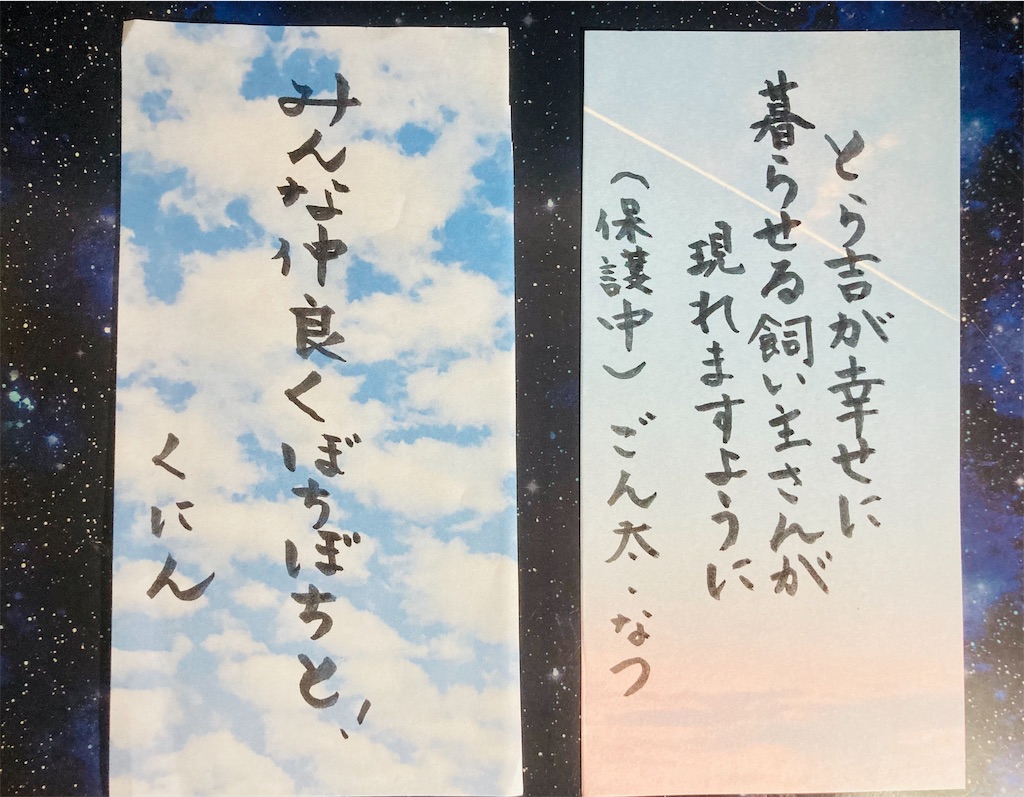 とら吉が幸せに
暮らせる飼い主さんが
現れますように
(保護中)ごん太・なつ
みんな仲良くぼちぼちと、
くにん